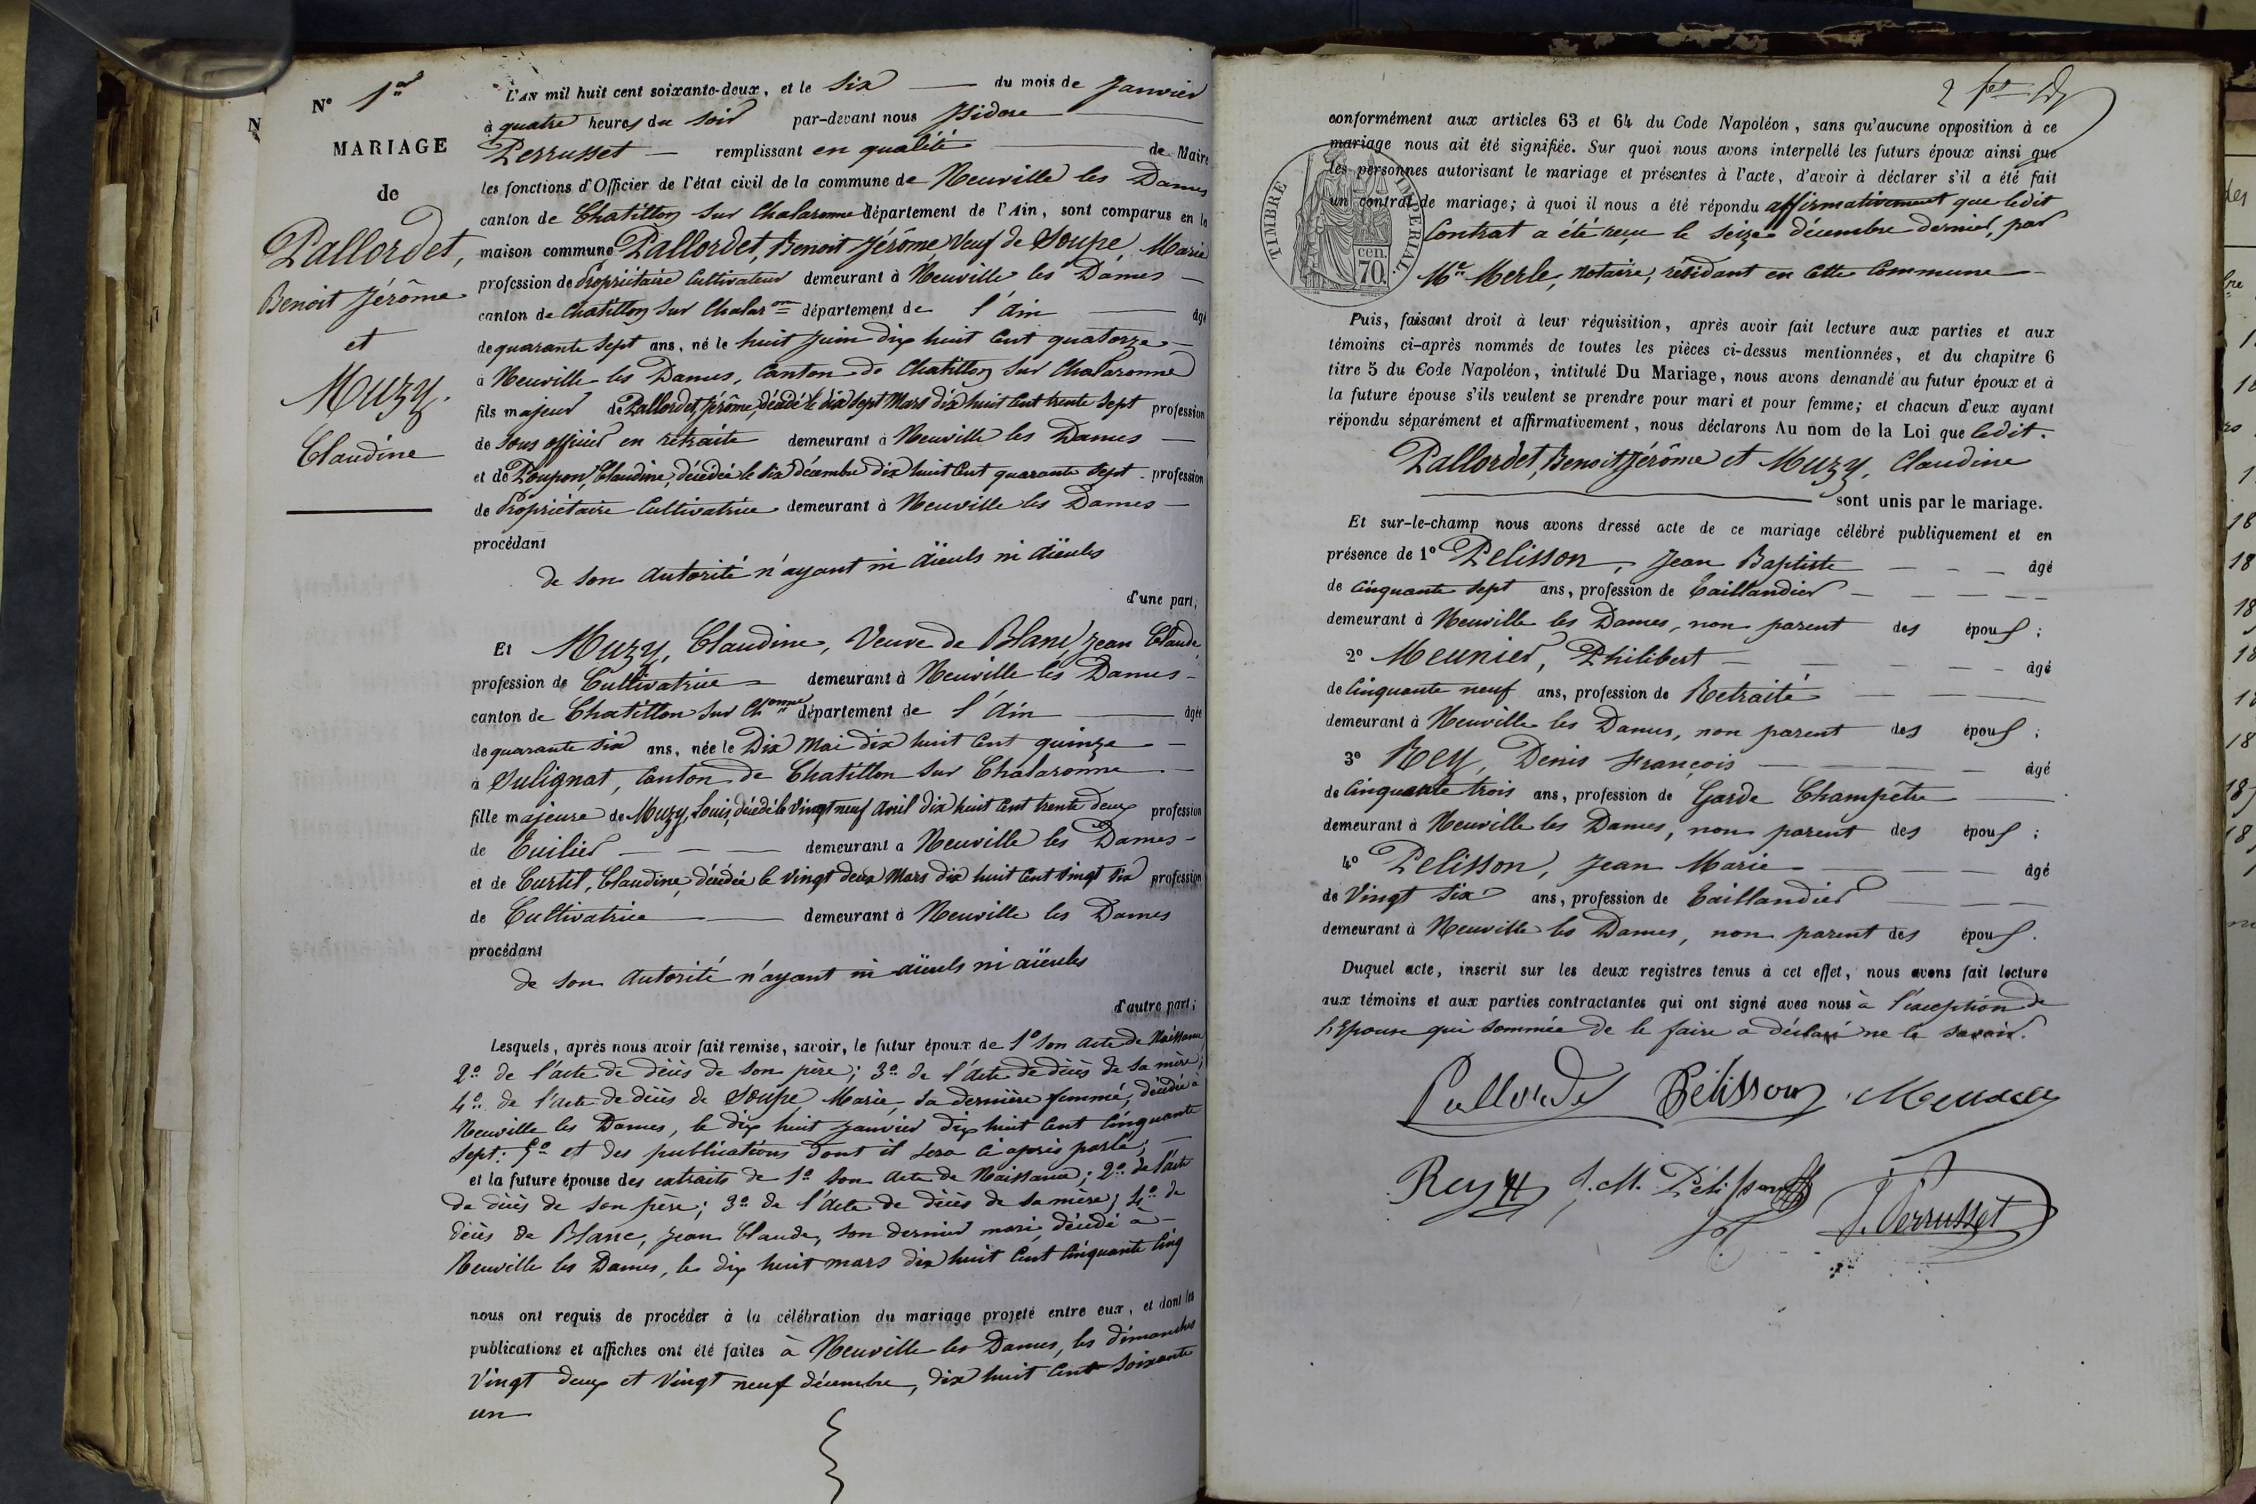 N° 1er
MARIAGE
de
Pallordet,
Benoit Jérôme
et
Muzy.
Claudine
L'AN mil huit cent soixante-deux, et le Six du mois de Janvier
à quatre heures du Soir par-devant nous Isidore
Perrusset remplissant en qualité de Maire
les fonctions d'Officier de l'état civil de la commune de Neuville les Dames
canton de Chatillon sur Chalaronne département de l'Ain, sont comparus en la
maison commune Pallordet, Benoit Jérôme Veuf de Soupe, Marie
profession de Propriétaire Cultivateur demeurant à Neuville les Dames
canton de Chatillon sur Chalaronne département de l'Ain âgé
de quarante Sept ans, né le huit Juin dix huit Cent quatorze
à Neuville les Dames, Canton de Chatillon sur Chalaronne
fils majeur de Pallordet, Jérôme, décédé le dix Sept Mars dix huit Cent trente Sept profession
de Sous officier en retraite demeurant à Neuville les Dames
et de Poupon, Claudine, décédée le Six décembre dix huit Cent quarante Sept profession
de Propriétaire Cultivatrice demeurant à Neuville les Dames
procédant
de son autorité n'ayant ni aïeuls ni aïeules
d'une part;
Et Muzy, Claudine, Veuve de Blanc, Jean Claude,
profession de Cultivatrice demeurant à Neuville les Dames
canton de Chatillon sur Chonne département de l'Ain âgée
de quarante Six ans, née le Dix Mai dix huit Cent quinze
à Sulignat, Canton de Chatillon sur Chalaronne
fille majeure de Muzy, Louis, décédé le Vingt neuf Avril dix huit Cent trente deux profession
de Tuilier demeurant à Neuville les Dames
et de Curtil, Claudine, décédée le Vingt deux Mars dix huit Cent Vingt Six profession
de Cultivatrice demeurant à Neuville les Dames
procédant
de son Autorité n'ayant ni aïeuls ni aïeules
d'autre part;
Lesquels, après nous avoir fait remise, savoir, le futur époux de 1° Son acte de Naissance
2° de l'acte de décès de son père; 3° de l'Acte de décès de sa mère;
4° de l'acte de décès de Soupe Marie, sa dernière femme, décédée à
Neuville les Dames, le dix huit Janvier dix huit Cent Cinquante
Sept: 5° et des publications dont il sera ci après parlé;
et la future épouse des extraits de 1° Son acte de Naissance; 2° de l'acte
de décès de son père; 3° de l'Acte de décès de sa mère; 4° de
décès de Blanc, Jean Claude, son dernier mari, décédé à
Neuville les Dames, le dix huit mars dix huit Cent Cinquante Cinq
nous ont requis de procéder à la célébration du mariage projeté entre eux, et dont les
publications et affiches ont été faites à Neuville les Dames, les dimanches
Vingt deux et Vingt neuf décembre, dix huit Cent Soixante
un
conformément aux articles 63 et 64 du Code Napoléon, sans qu'aucune opposition à ce
mariage nous ait été signifiée. Sur quoi nous avons interpellé les futurs époux ainsi que
les personnes autorisant le mariage et présentes à l'acte, d'avoir à déclarer s'il a été fait
un contrat de mariage; à quoi il nous a été répondu affirmativement que ledit
Contrat a été reçu le Seize décembre dernier, par
Me Merle, notaire, résidant en cette Commune
TIMBRE IMPÉRIAL.
cen.
70.
Puis, faisant droit à leur réquisition, après avoir fait lecture aux parties et aux
témoins ci-après nommés de toutes les pièces ci-dessus mentionnées, et du chapitre 6
titre 5 du Code Napoléon, intitulé Du Mariage, nous avons demandé au futur époux et à
la future épouse s'ils veulent se prendre pour mari et pour femme; et chacun d'eux ayant
répondu séparément et affirmativement, nous déclarons Au nom de la Loi que ledit.
Pallordet, Benoit Jérôme et Muzy, Claudine
sont unis par le mariage.
Et sur-le-champ nous avons dressé acte de ce mariage célébré publiquement et en
présence de 1° Pelisson, Jean Baptiste âgé
de Cinquante Sept ans, profession de Taillandier
demeurant à Neuville les Dames, non parent des époux;
2° Meunier, Philibert âgé
de Cinquante neuf ans, profession de Retraité
demeurant à Neuville les Dames, non parent des époux;
3° Rey, Denis François âgé
de Cinquante trois ans, profession de Garde Champêtre
demeurant à Neuville les Dames, non parent des époux;
4° Pelisson, Jean Marie âgé
de Vingt Six ans, profession de Taillandier
demeurant à Neuville les Dames, non parent des époux.
Duquel acte, inscrit sur les deux registres tenus à cet effet, nous avons fait lecture
aux témoins et aux parties contractantes qui ont signé avec nous à l'exception de
l'Epouse qui sommée de le faire a déclaré ne le savoir.
Pallordet Pélisson Meunier
Rey J. M. Pélisson
J. Perrusset